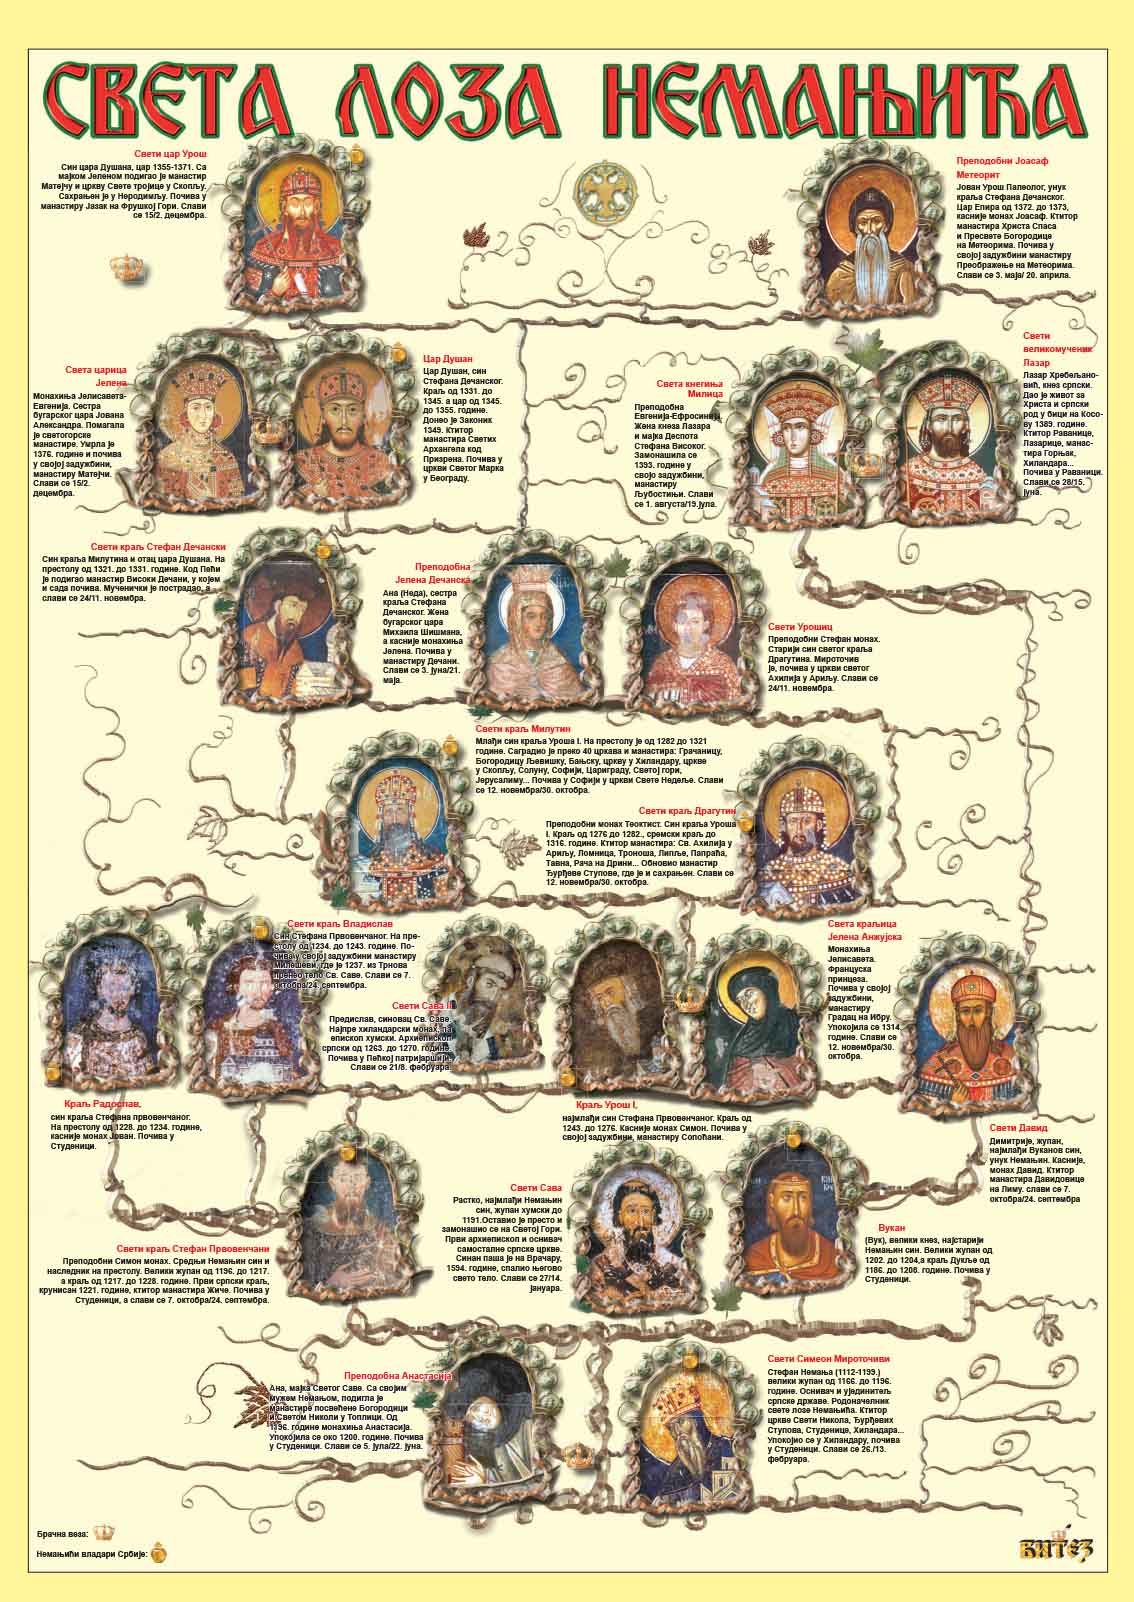 СВЕТА ЛОЗА НЕМАЊИЋА
Свети цар Урош
Син цара Душана, цар 1355-1371. Са
мајком Јеленом подигао је манастир
Матејчу и цркву Свете тројице у Скопљу.
Сахрањен је у Неродимљу. Почива у
манастиру Јазак на Фрушкој Гори. Слави
се 15/2. децембра.
Преподобни Јоасаф
Метеорит
Јован Урош Палеолог, унук
краља Стефана Дечанског.
Цар Епира од 1372. до 1373,
касније монах Јоасаф. Ктитор
манастира Христа Спаса
и Пресвете Богородице
на Метеорима. Почива у
својој задужбини манастиру
Преображење на Метеорима.
Слави се 3. маја/ 20. априла.
Света царица
Јелена
Монахиња Јелисавета-
Евгенија. Сестра
бугарског цара Јована
Александра. Помагала
је светогорске
манастире. Умрла је
1376. године и почива
у својој задужбини,
манастиру Матејчи.
Слави се 15/2.
децембра.
Цар Душан
Цар Душан, син
Стефана Дечанског.
Краљ од 1331. до
1345. а цар од 1345.
до 1355. године.
Донео је Законик
1349. Ктитор
манастира Светих
Архангела код
Призрена. Почива у
цркви Светог Марка
у Београду.
Света кнегиња
Милица
Преподобна
Евгенија-Ефросинија.
Жена кнеза Лазара
и мајка Деспота
Стефана Високог.
Замонашила се
1393. године у
својо задужбини,
манастиру
Љубостињи. Слави
се 1. августа/19.јула.
Свети
великомученик
Лазар
Лазар Хребељано-
вић, кнез српски.
Дао је живот за
Христа и српски
род у бици на Косо-
ву 1389. године.
Ктитор Раванице,
Лазарице, манас-
тира Горњак,
Хиландара...
Почива у Раваници.
Слави се 28/15.
јуна.
Свети краљ Стефан Дечански
Син краља Милутина и отац цара Душана. На
престолу од 1321. до 1331. године. Код Пећи
је подигао манастир Високи Дечани, у којем
и сада почива. Мученички је пострадао, а
слави се 24/11. новембра.
Преподобна
Јелена Дечанска
Ана (Неда), сестра
краља Стефана
Дечанског. Жена
бугарског цара
Михаила Шишмана,
а касније монахиња
Јелена. Почива у
манастиру Дечани.
Слави се 3. јуна/21.
маја.
Свети Урошиц
Преподобни Стефан монах.
Старији син светог краља
Драгутина. Мироточив
је, почива у цркви светог
Ахилија у Ариљу. Слави се
24/11. новембра.
Свети краљ Милутин
Млађи син краља Уроша I. На престолу је од 1282 до 1321
године. Саградио је преко 40 цркава и манастира: Грачаницу,
Богородицу Љевишку, Бањску, цркву у Хиландару, цркве
у Скопљу, Солуну, Софији, Цариграду, Светој гори,
Јерусалиму... Почива у Софији у цркви Свете Недеље. Слави
се 12. новембра/30. октобра.
Свети краљ Драгутин
Преподобни монах Теоктист. Син краља Уроша
I. Краљ од 1276 до 1282., сремски краљ до
1316. године. Ктитор манастира: Св. Ахилија у
Ариљу, Ломница, Троноша, Липље, Папраћа,
Тавна, Рача на Дрини... Обновио манастир
Ђурђеве Ступове, где је и сахрањен. Слави се
12. новембра/30. октобра.
Свети краљ Владислав
Син Стефана Првовенчаног. На пре-
столу од 1234. до 1243. године. По-
чива у својој задужбини манастиру
Милешеви, где је 1237. из Трнова
пренео тело Св. Саве. Слави се 7.
октобра/24. септембра.
Свети Сава II
Предислав, синовац Св. Саве.
Најпре хиландарски монах, па
епископ хумски. Архиепископ
српски од 1263. до 1270. године.
Почива у Пећкој патријаршији.
Слави се 21/8. фебруара.
Света краљица
Јелена Анжујска
Монахиња
Јелисавета.
Француска
принцеза.
Почива у својој
задужбини,
манастиру
Градац на Ибру.
Упокојила се 1314.
године. Слави се
12. новембра/30.
октобра.
Краљ Радослав,
син краља Стефана првовенчаног.
На престолу од 1228. до 1234. године,
касније монах Јован. Почива у
Студеници.
Краљ Урош I,
најмлађи син Стефана Првовенчаног. Краљ од
1243. до 1276. Касније монах Симон. Почива у
својој задужбини, манастиру Сопоћани.
Свети Давид
Димитрије, жупан,
најмлађи Вуканов син,
унук Немањин. Касније,
монах Давид. Ктитор
манастира Давидовице
на Лиму. слави се 7.
октобра/24. септембра
Свети Сава
Растко, најмлађи Немањин
син, жупан хумски до
1191.Оставио је престо и
замонашио се на Светој Гори.
Први архиепископ и оснивач
самосталне српске цркве.
Синан паша је на Врачару,
1594. године, спалио његово
свето тело. Слави се 27/14.
јануара.
Вукан
(Вук), велики кнез, најстарији
Немањин син. Велики жупан од
1202. до 1204,а краљ Дукље од
1186. до 1208. године. Почива у
Студеници.
Свети краљ Стефан Првовенчани
Преподобни Симон монах. Средњи Немањин син и
наследник на престолу. Велики жупан од 1196. до 1217.
а краљ од 1217. до 1228. године. Први српски краљ,
крунисан 1221. године, ктитор манастира Жиче. Почива у
Студеници, а слави се 7. октобра/24. септембра.
Преподобна Анастасија
Ана, мајка Светог Саве. Са својим
мужем Немањом, подигла је
манастире посвећене Богородици
и Светом Николи у Топлици. Од
1196. године монахиња Анастасија.
Упокојила се око 1200. године. Почива
у Студеници. Слави се 5. јула/22. јуна.
Свети Симеон Мироточиви
Стефан Немања (1112-1199.)
велики жупан од 1166. до 1196.
године. Оснивач и ујединитељ
српске државе. Родоначелник
свете лозе Немањића. Ктитор
цркве Свети Никола, Ђурђевих
Ступова, Студенице, Хиландара...
Упокојио се у Хиландару, почива
у Студеници. Слави се 26./13.
фебруара.
Брачна веза:
Немањићи владари Србије:
ВИТЕЗ